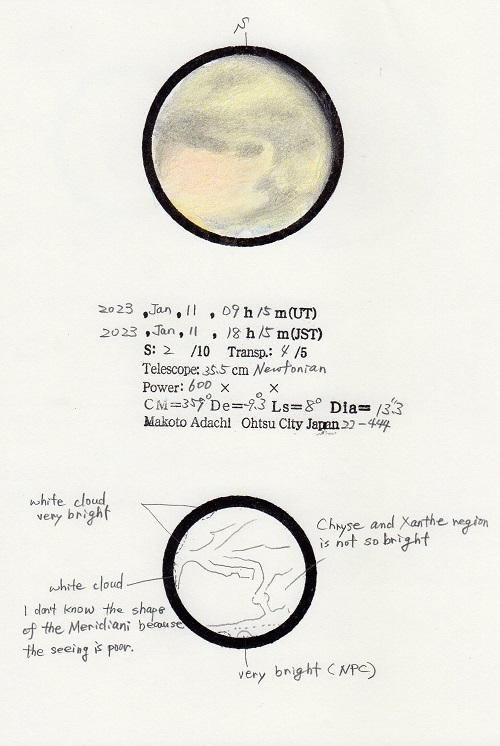 S
2023 , Jan , 11 , 09 h 15 m (UT)
2023 , Jan , 11 , 18 h 15 m (JST)
S: 2 /10 Transp.: 4 /5
Telescope: 35.5 cm Newtonian
Power: 600 × ×
CM=359° De=-9.3° Ls=8° Dia=13."3
Makoto Adachi Ohtsu City Japan 22-444
white cloud
very bright
Chryse and Xanthe region
is not so bright
white cloud
I don't know the shape
of the Meridiani because
the seeing is poor.
very bright (NPC)